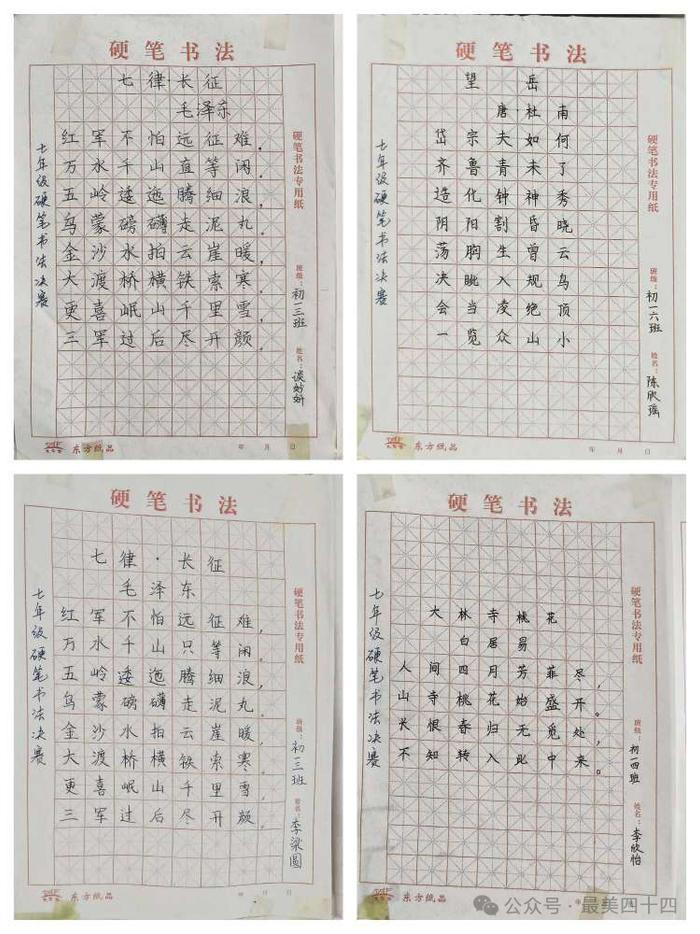 硬笔书法
七律·长征
毛泽东
红军不怕远征难，
万水千山直等闲。
五岭逶迤腾细浪，
乌蒙磅礴走泥丸。
金沙水拍云崖暖，
大渡桥横铁索寒。
更喜岷山千里雪，
三军过后尽开颜。
七年级硬笔书法决赛
硬笔书法专用纸
班级：初一三班
姓名：
东方纸品
年 月 日
硬笔书法
望岳
唐杜南
岱宗夫如何
齐鲁青未了
造化钟神秀
阴阳割昏晓
荡胸生曾云
决眺入规鸟
会当凌绝顶
一览众山小
七年级硬笔书法决赛
硬笔书法专用纸
班级：初一六班
姓名：陈欣瑶
东方纸品
年 月 日
硬笔书法
七律·长征
毛泽东
红军不怕远征难，
万水千山只等闲。
五岭逶迤腾细浪，
乌蒙磅礴走泥丸。
金沙水拍云崖暖，
大渡桥横铁索寒。
更喜岷山千里雪，
三军过后尽开颜。
七年级硬笔书法决赛
硬笔书法专用纸
班级：初一三班
姓名：李梁圆
东方纸品
年 月 日
硬笔书法
大林寺桃花
白居易
人间四月芳菲尽，
山寺桃花始盛开。
长恨春归无觅处，
不知转入此中来。
七年级硬笔书法决赛
硬笔书法专用纸
班级：初一四班
姓名：李欣怡
东方纸品
年
公众号·最美四十四